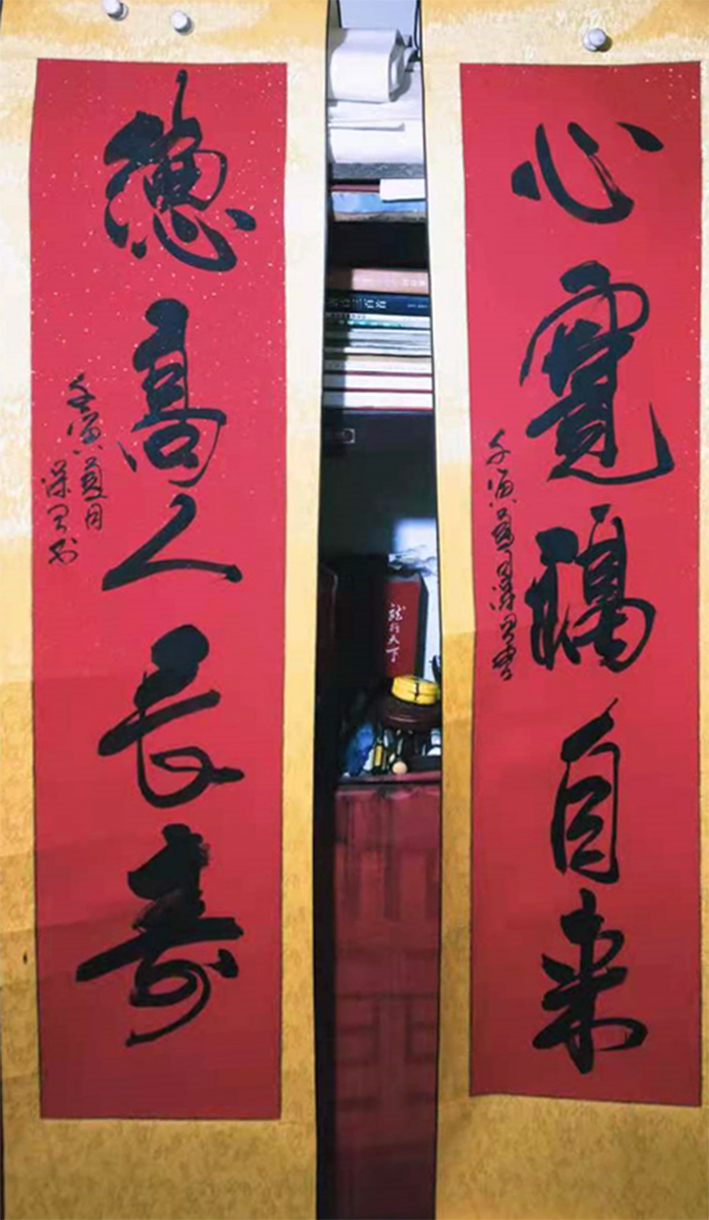 心寬福自来
壬寅夏月
德高人长寿
壬寅夏月
龍行天下